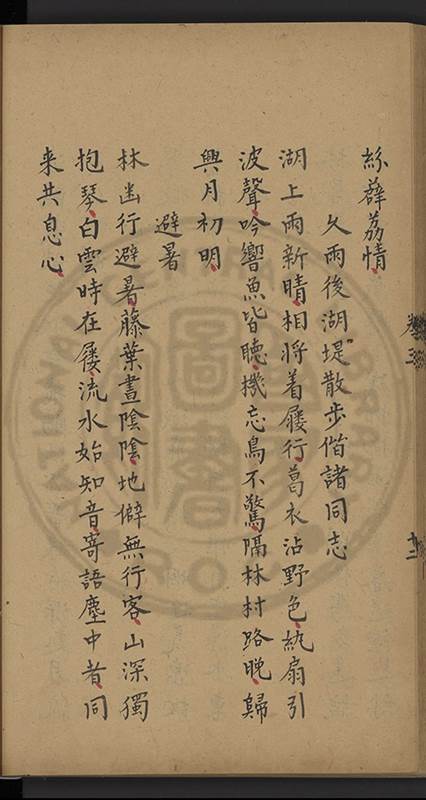 絲薜荔情
久雨後湖堤散步偕諸同志
湖上雨新晴相將着屐行葛衣沾野色紈扇引
波聲吟響魚皆聽機忘鳥不驚隔林村路晚歸
興月初明
避暑
林幽行避暑藤葉晝陰陰地僻無行客山深獨
抱琴白雲時在屐流水始知音寄語塵中者同
来共息心
卷三
十二